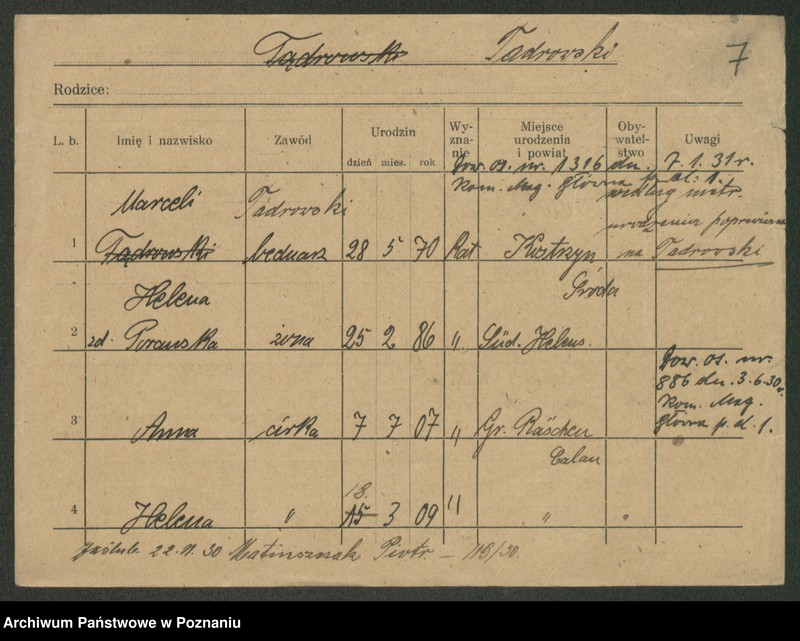 Tądrowski Tadrovski 7
Rodzice:
L. b. Imię i nazwisko Zawód Urodzin dzień mies. rok Wy-zna-nie Miejsce urodzenia i powiat Oby-watel-stwo Uwagi
Dow. os. nr. 1316 dn. 7.1.31 r.
Kom. Mag. Główna p. al: 1.
Marceli Tadrovski według metr.
urodzenia poprawiono
1 Tądrowski bednarz 28 5 70 Kat Kostrzyn na Tadrovski
Helena Środa
2 zd. żona 25 2 86 „ Süd. Helens.
Dow. os. nr.
886 dn. 3.6.30 r.
Kom. Mag.
Główna p. al. 1.
3 Anna córka 7 7 07 „ Gr. Räschen
Calau
18.
4 Helena „ 15 3 09 „ „
22.11.30 Piotr –
Archiwum Państwowe w Poznaniu